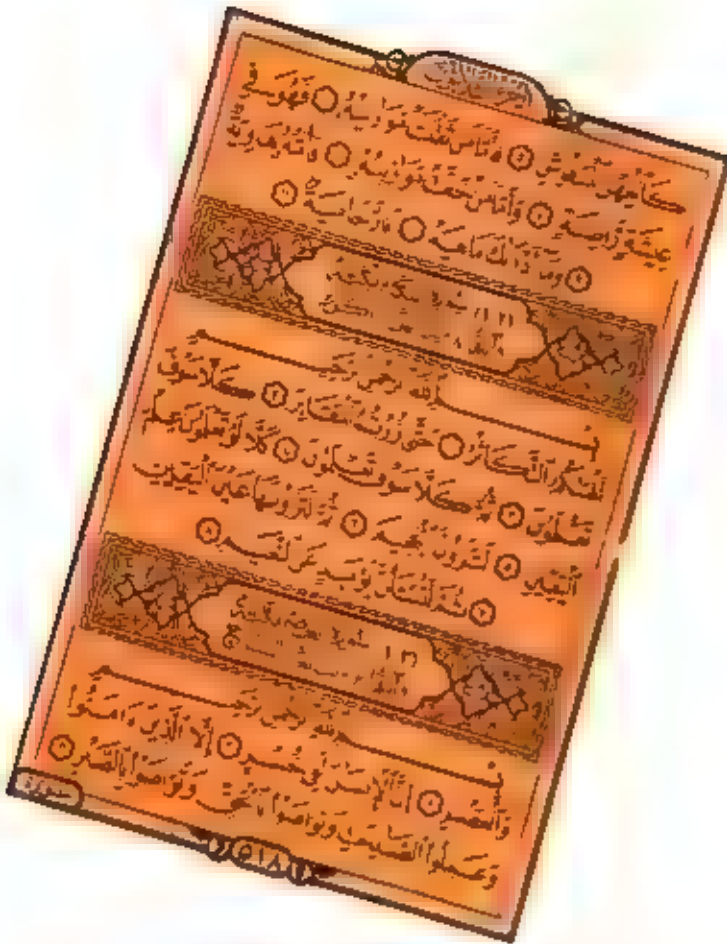 الجزء الثلاثون
كالعهن المنفوش فأما من ثقلت موازينه فهو في
عيشة راضية وأما من خفت موازينه فأمه هاوية
وما أدراك ما هيه نار حامية
سورة مكية
بسم الله الرحمن الرحيم
ألهاكم التكاثر حتى زرتم المقابر كلا سوف
تعلمون ثم كلا سوف تعلمون كلا لو تعلمون علم
اليقين لترون الجحيم ثم لترونها عين اليقين
ثم لتسألن يومئذ عن النعيم
سورة مكية
بسم الله الرحمن الرحيم
والعصر إن الإنسان لفي خسر إلا الذين ءامنوا
وعملوا الصالحات وتواصوا بالحق وتواصوا بالصبر
سورة
٥١٨